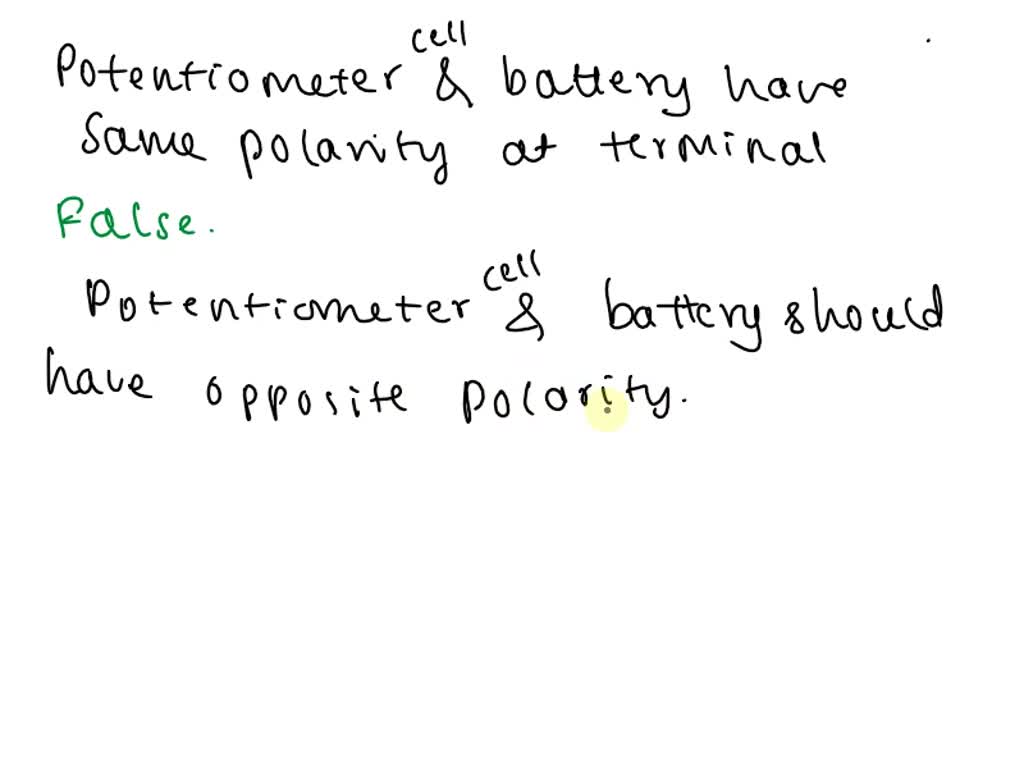 Potentiometer cell & battery have
same polarity at terminal
False.
Potentiometer cell & battery should
have opposite polarity.